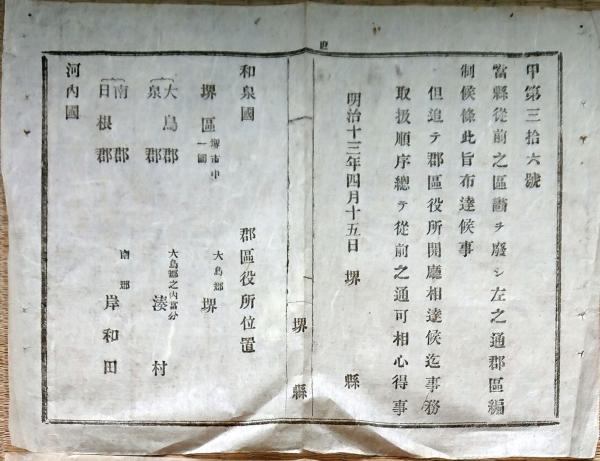 甲第三拾六號
當縣從前之區畫ヲ廢シ左之通郡區編
制候條此旨布達候事
但追テ郡區役所開廳相達候迄事務
取扱順序總テ從前之通可相心得事
明治十三年四月十五日 堺縣
堺縣
和泉國 郡區役所位置
堺區 堺市中一圓 大鳥郷 堺
大鳥郡
泉郡 大鳥郷之內當分 湊村
南郡
日根郡 南郷 岸和田
河內國